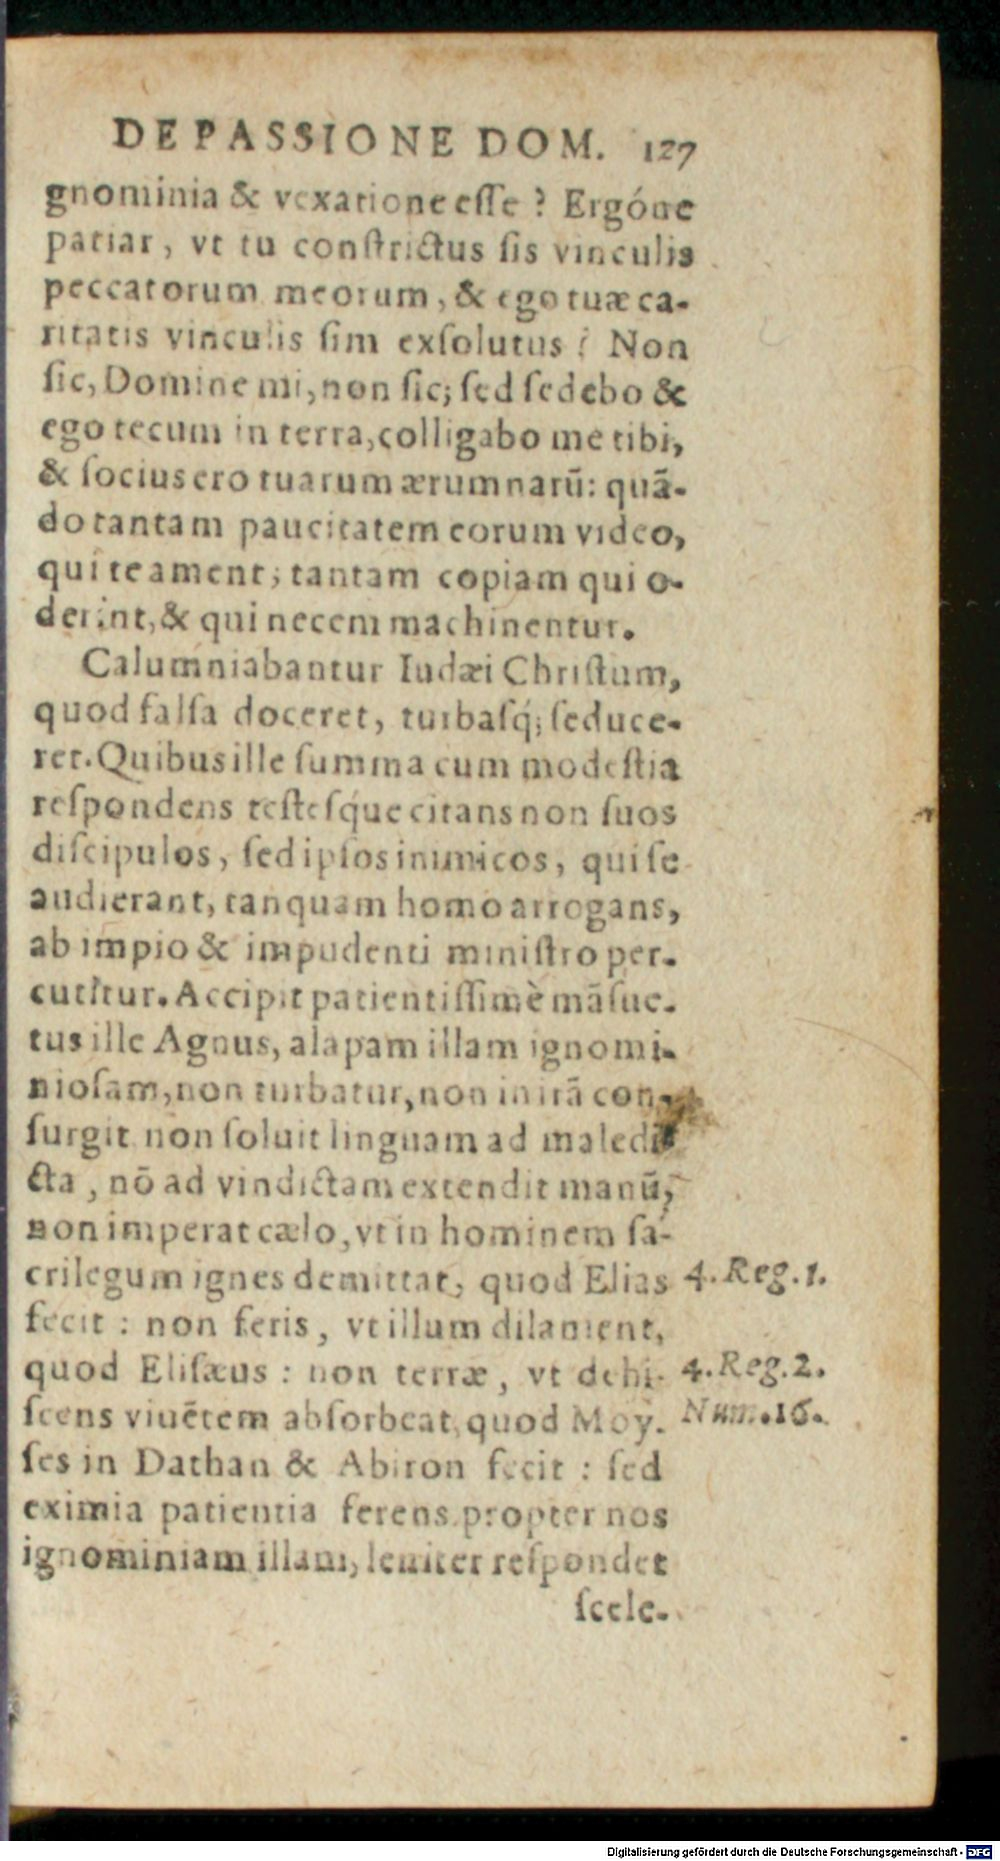 DE PASSIONE DOM. 127
gnominia & vexatione eſſe? Ergóne
patiar, vt tu conſtrictus ſis vinculis
peccatorum meorum, & ego tuæ ca-
ritatis vinculis ſim exſolutus? Non
ſic, Domine mi, non ſic; ſed ſedebo &
ego tecum in terra, colligabo me tibi,
& ſocius ero tuarum ærumnarū: quā-
do tantam paucitatem eorum video,
qui te ament; tantam copiam qui o-
derint, & qui necem machinentur.
Calumniabantur Iudæi Chriſtum,
quod falſa doceret, turbaſq́; ſeduce-
ret. Quibus ille ſumma cum modeſtia
reſpondens teſteſq́ue citans non ſuos
diſcipulos, ſed ipſos inimicos, qui ſe
audierant, tanquam homo arrogans,
ab impio & impudenti miniſtro per-
cutitur. Accipit patientiſſimè māſue-
tus ille Agnus, alapam illam ignomi-
nioſam, non turbatur, non in irā con-
ſurgit non ſoluit linguam ad maledi
cta, nō ad vindictam extendit manū,
non imperat cælo, vt in hominem ſa-
crilegum ignes demittat, quod Elias 4. Reg. 1.
fecit: non feris, vt illum dilanient,
quod Eliſæus: non terræ, vt dehi- 4. Reg. 2.
ſcens viuētem abſorbeat, quod Moy- Num. 16.
ſes in Dathan & Abiron fecit: ſed
eximia patientia ferens propter nos
ignominiam illam, leniter reſpondet
ſcele-
Digitalisierung gefördert durch die Deutsche Forschungsgemeinschaft - DFG